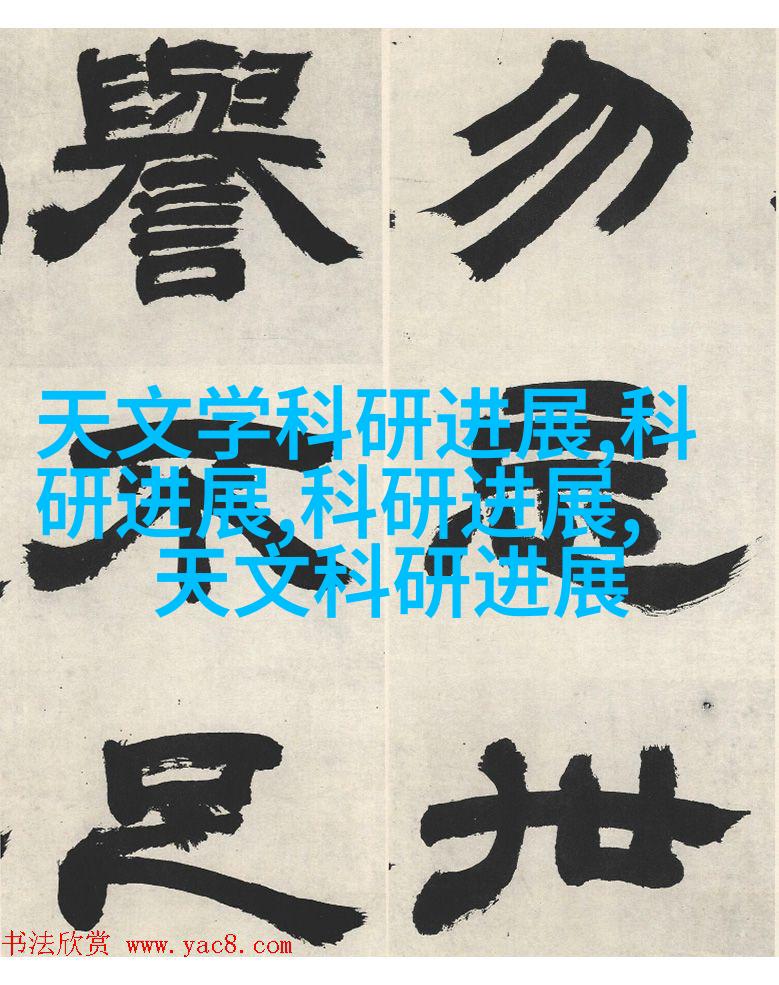 勿
世
譽不足
天文学科研进展,科
研进展,科研进展,
天文科研进展
书法欣赏 www.yac8.com